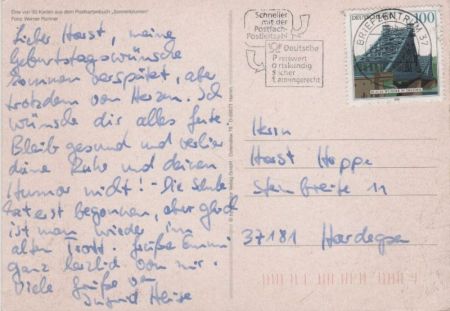 Eine von 30 Karten aus dem Postkartenbuch „Sonnenblumen"
Foto: Werner Richner
Lieber Horst, meine
Geburtstagswünsche
kommen verspätet, aber
trotzdem von Herzen. Ich
wünsche dir alles Gute
Bleib gesund und verlier
deine Ruhe und deinen
Humor nicht! - Die Schule
hat erst begonnen, aber gleich
ist man wieder im
alten Trott. Grüße Emmi
ganz herzlich von mir.
Viele Grüße von
Schneller
mit der
Postfach-
Postleitzahl
Deutsche
Preiswert
Ortskundig
Sicher
Termingerecht
BRIEFZENTRUM 37
100
Herrn
Horst Hoppe
Steinbreite 11
37181 Hardegsen